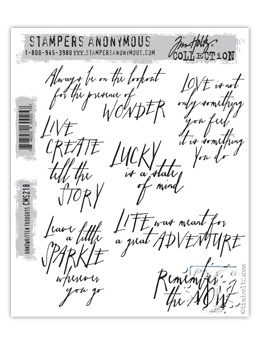 STAMPERS ANONYMOUS
1-800-945-3980
Tim Holtz
COLLECTION
Always be on the lookout
for the presence of
WONDER
LOVE is not
only something
you feel
it is something
you do
LIVE
CREATE
tell the
STORY
LUCKY
is a state
of mind
Leave
a little
SPARKLE
wherever
you go
LIFE was meant for
a great ADVENTURE
Remember
the NOW
HANDWRITTEN THOUGHTS CMS218
©timholtz.com